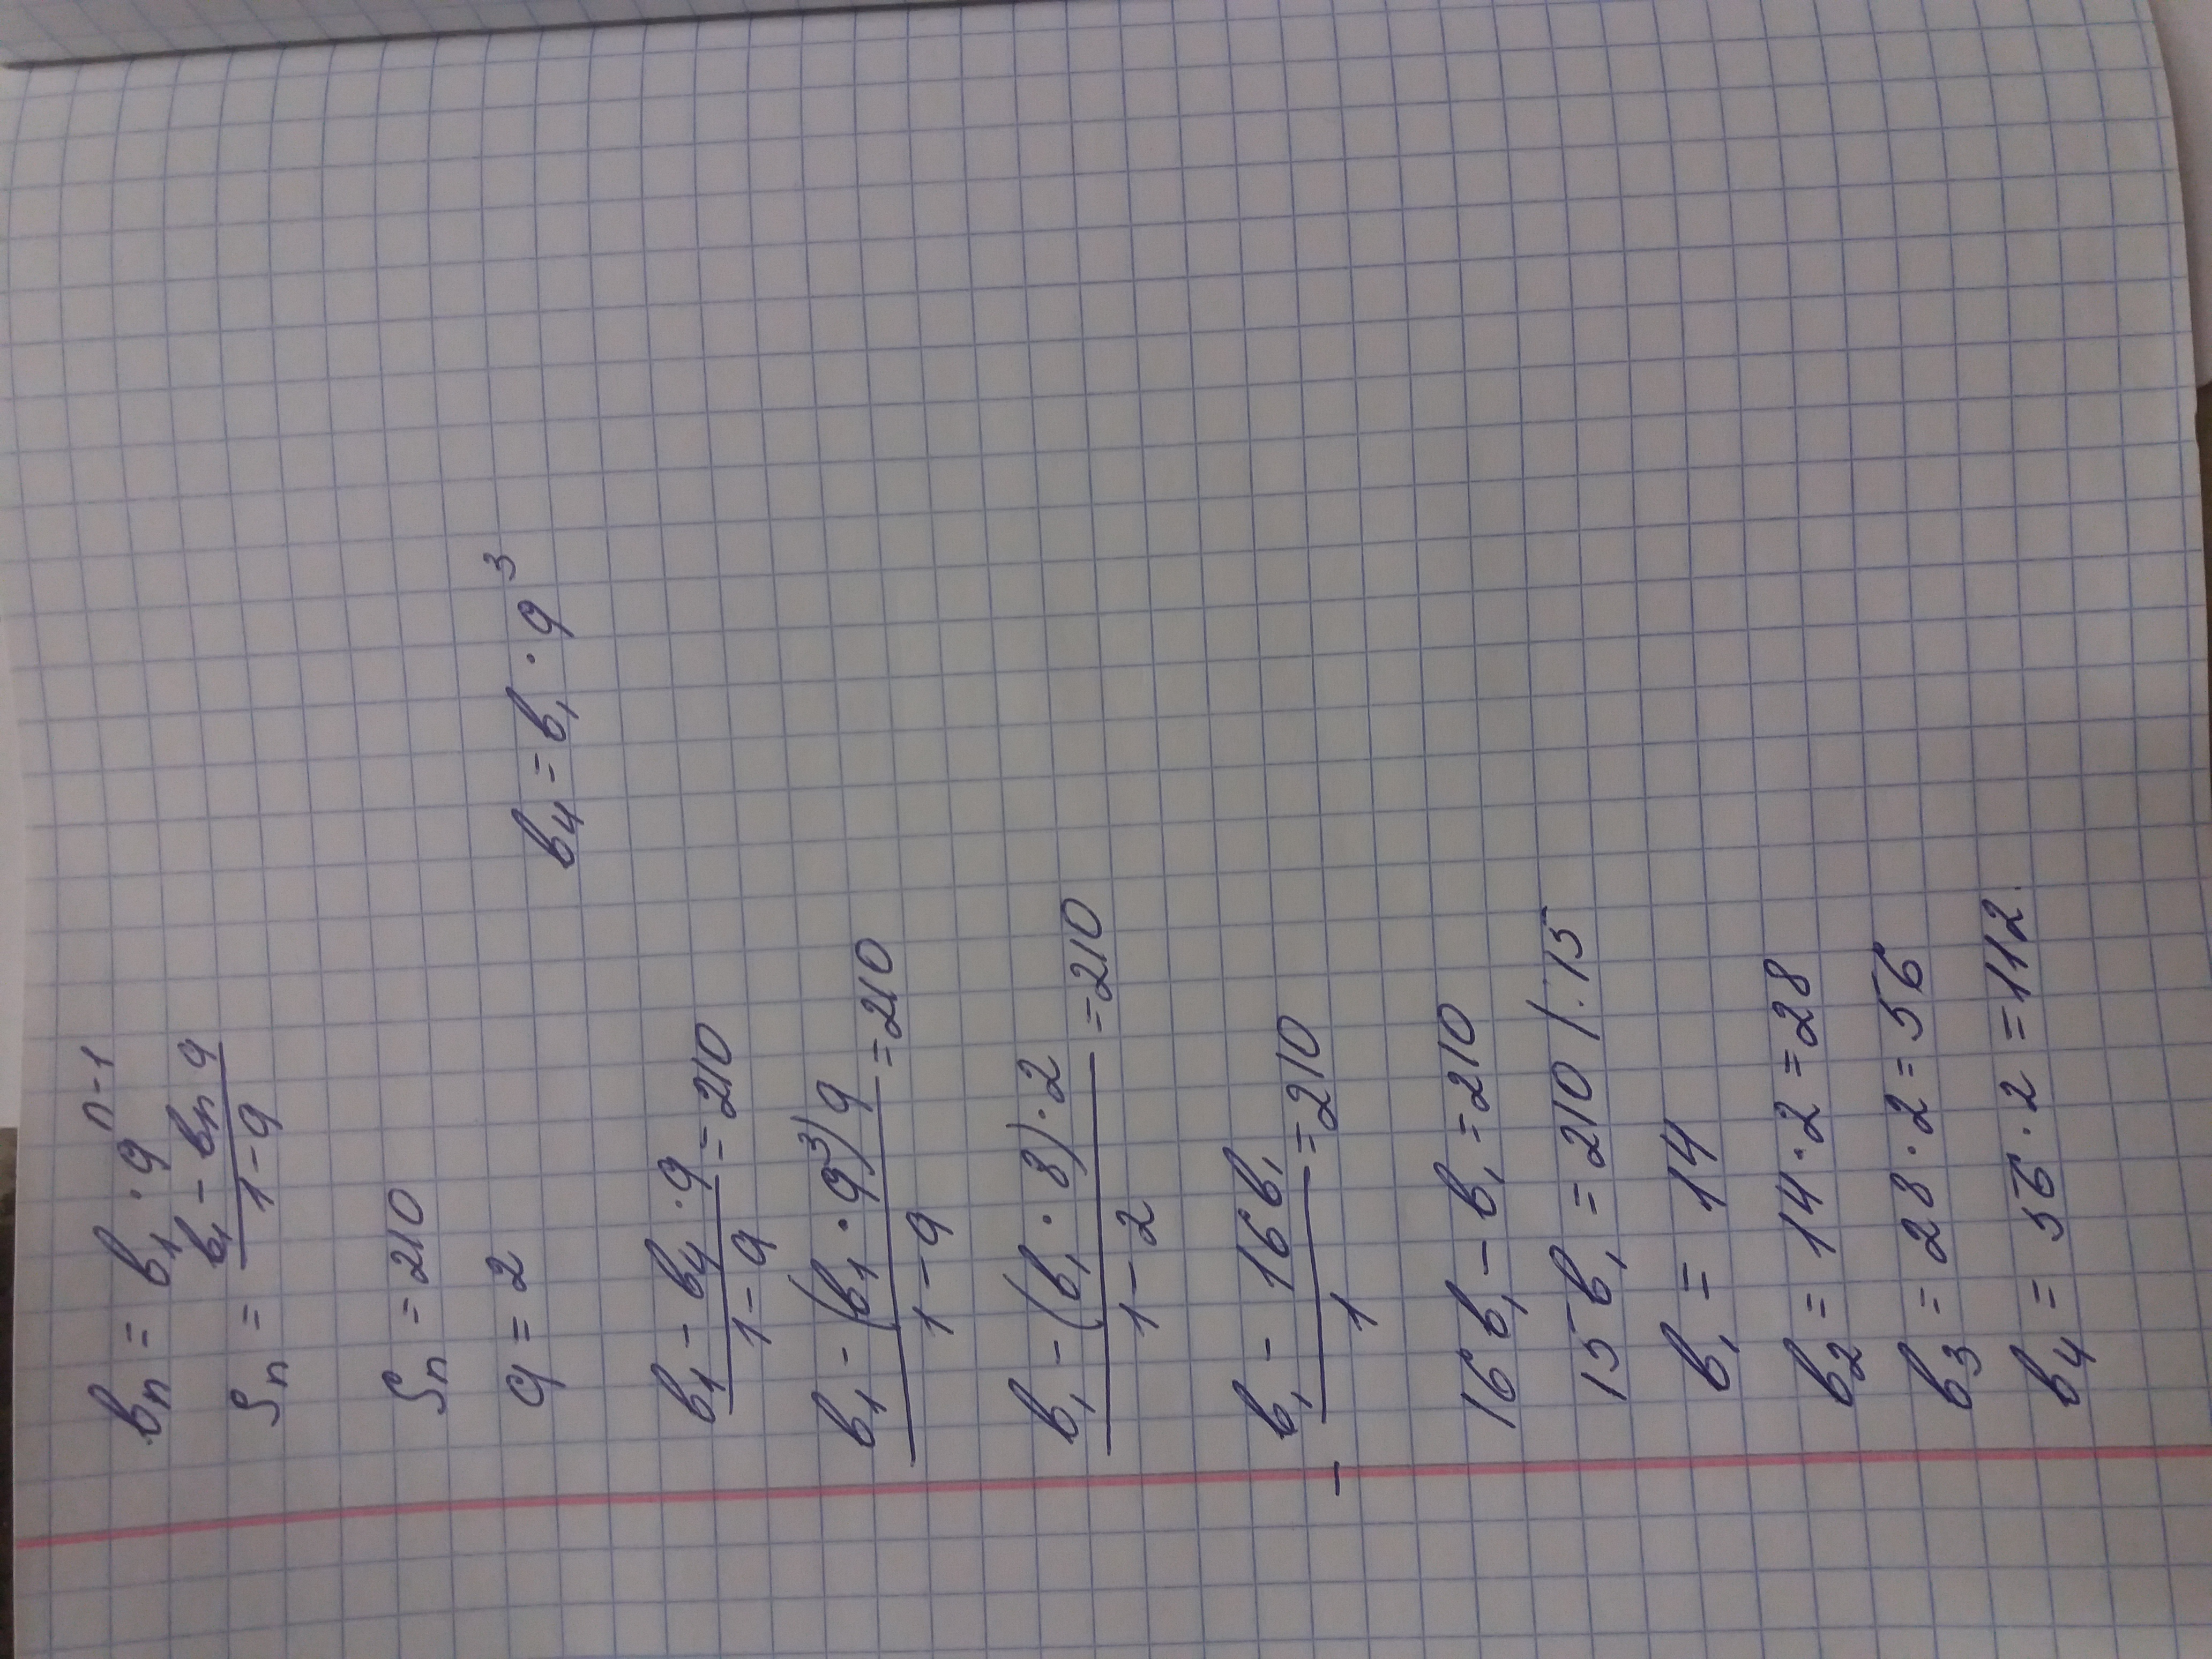 bₙ = b₁ · qⁿ⁻¹
Sₙ = (b₁ - bₙ q) / (1 - q)
Sₙ = 210
q = 2
b₄ = b₁ · q³
(b₁ - b₄ · q) / (1 - q) = 210
(b₁ - (b₁ · q³) q) / (1 - q) = 210
(b₁ - (b₁ · 8) · 2) / (1 - 2) = 210
- (b₁ - 16 b₁) / 1 = 210
16 b₁ - b₁ = 210
15 b₁ = 210 / : 15
b₁ = 14
b₂ = 14 · 2 = 28
b₃ = 28 · 2 = 56
b₄ = 56 · 2 = 112.